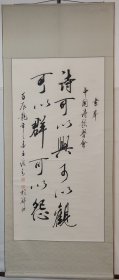 書奉
中國詩歌學會
詩可以興可以觀
可以群可以怨